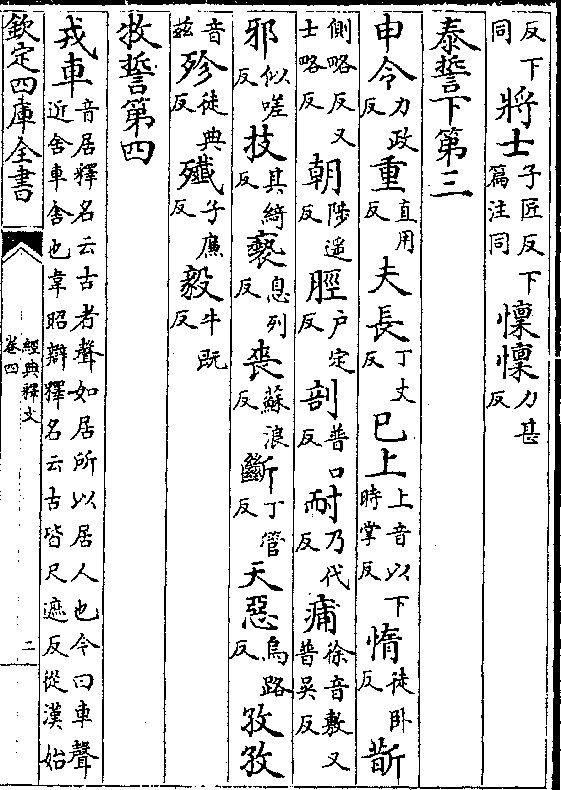 反下同將士子匠反下篇注同懍懍力甚反
泰誓下第三
申令力政反重直用反夫長丁丈反已上上音以下時掌反惰徒卧反斮
側略反又士略反朝陟遥反脛户定反剖普口反耐乃代反痡徐音敷又普吴反
邪似嗟反技其綺反褻息列反喪蘇浪反斷丁管反天惡烏路反孜孜
音兹殄徒典反殲子廉反毅牛既反
牧誓第四
戎車音居釋名云古者聲如居所以居人也今曰車聲近舍車舍也韋昭辯釋名云古皆尺遮反從漢始
欽定四庫全書
經典釋文
卷四
二